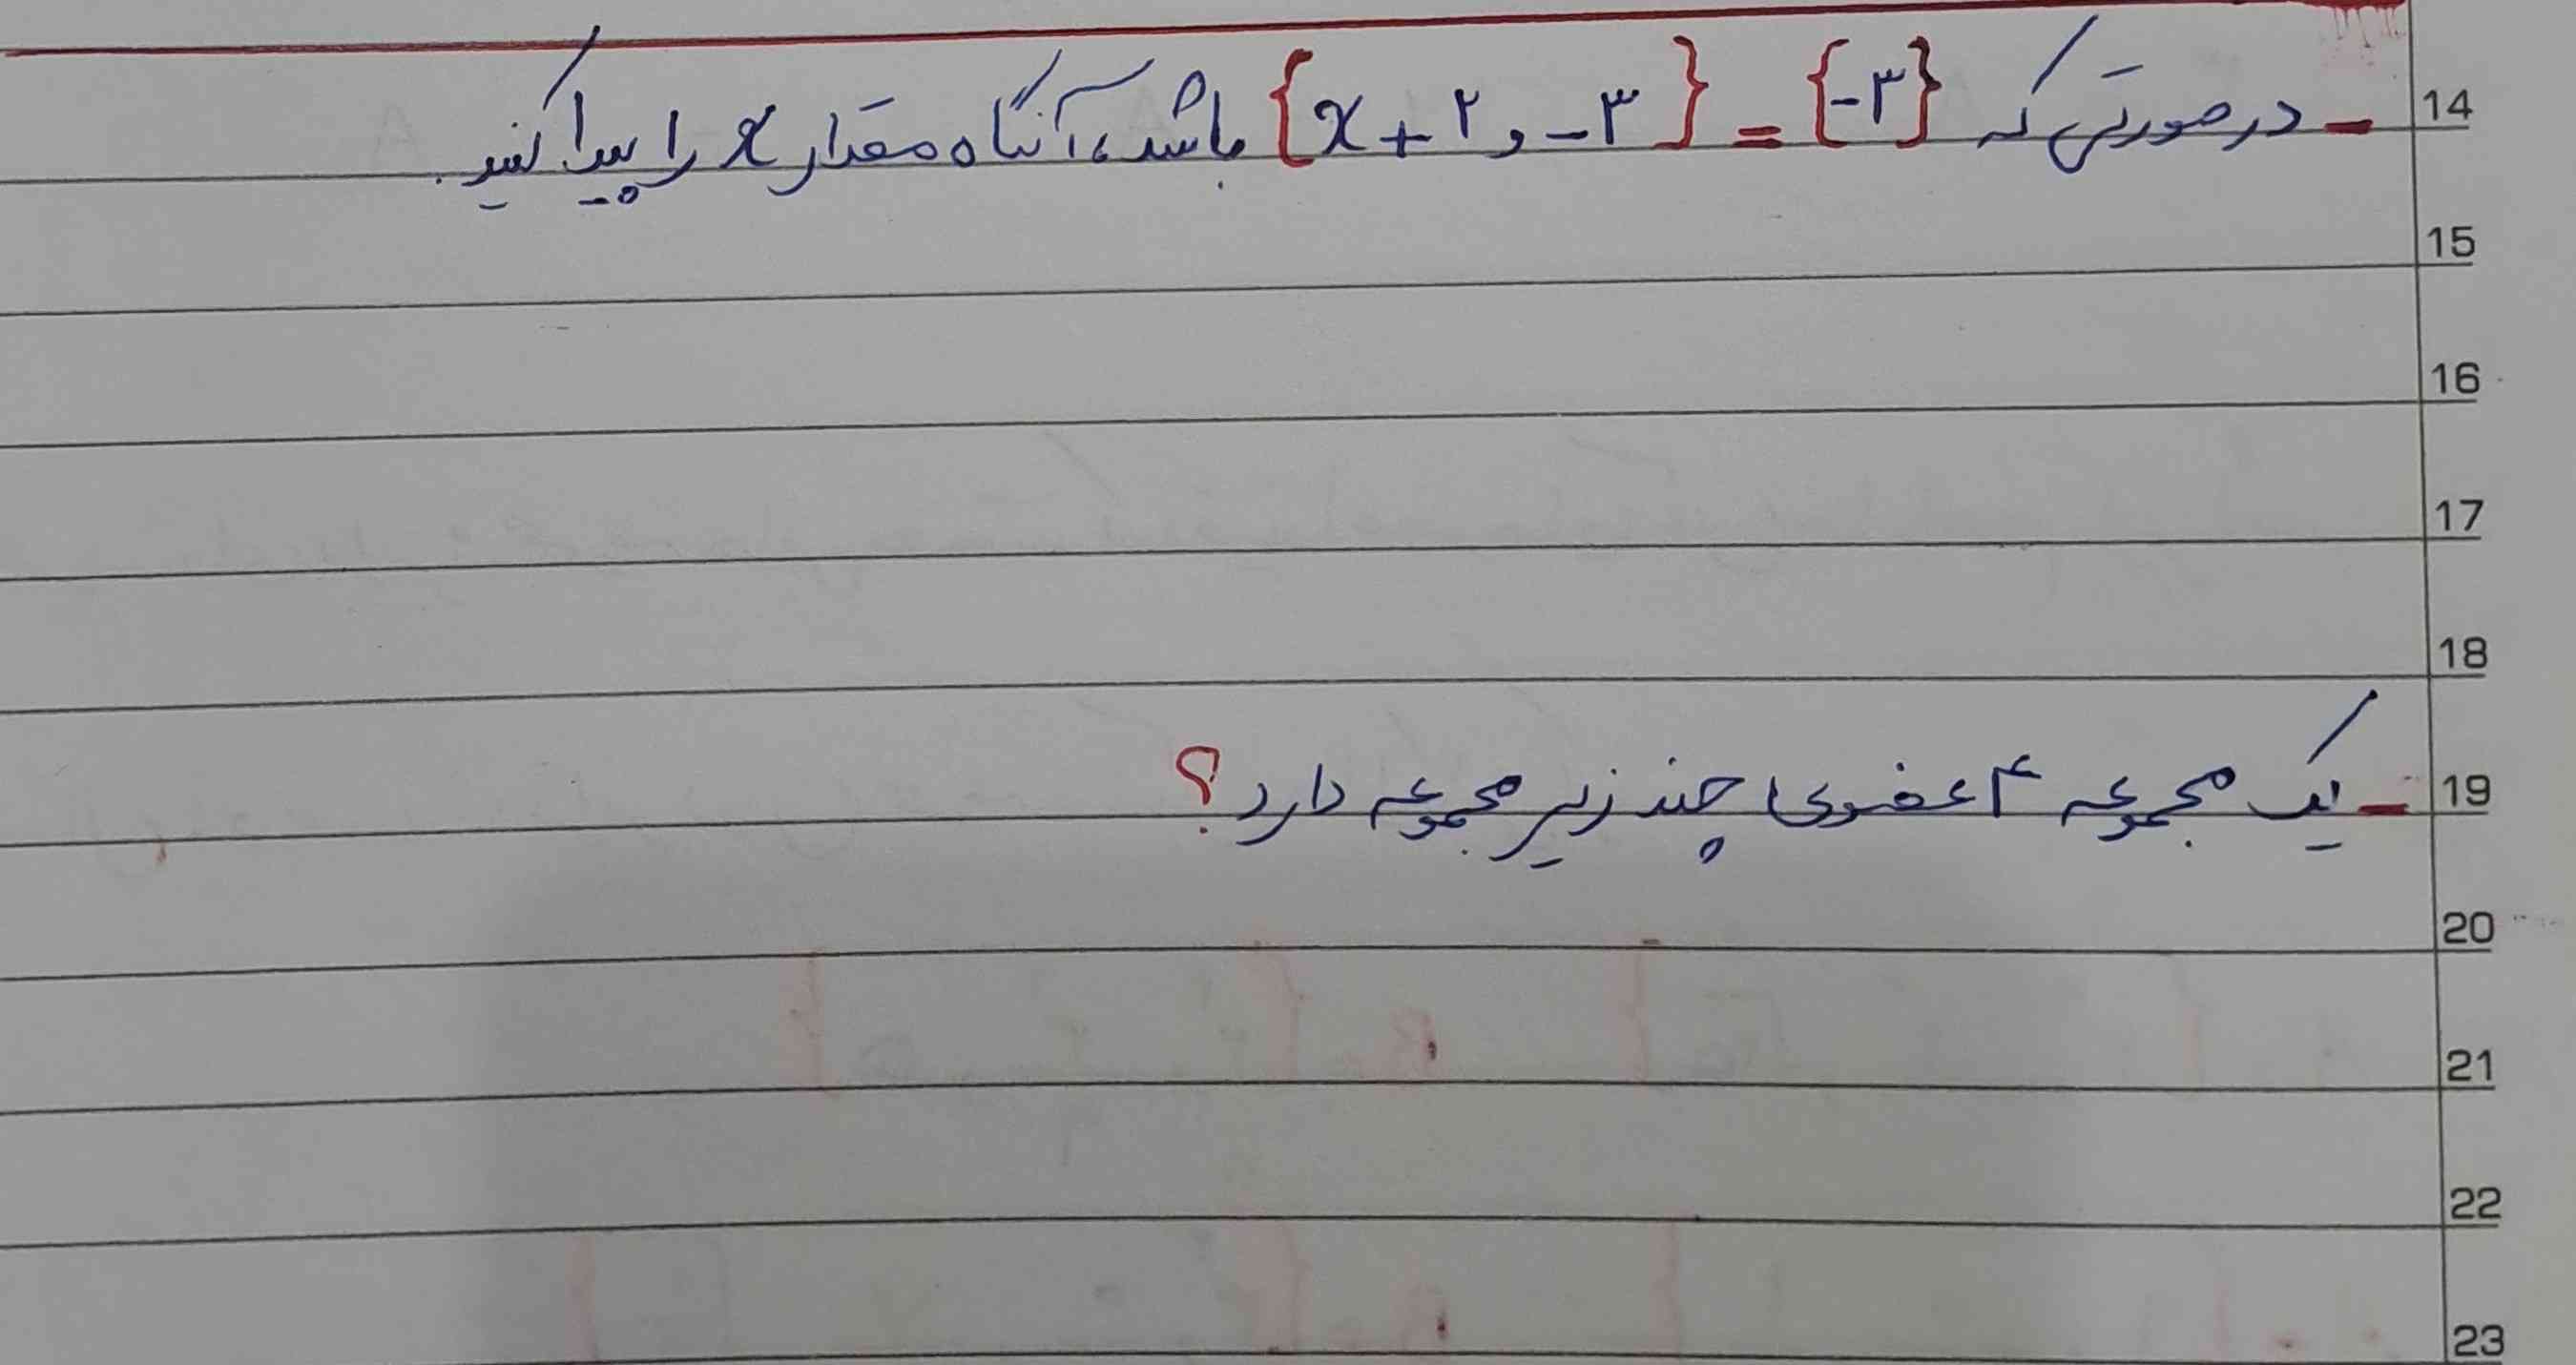 14 - در صورتی که {-۳} = {x + ۲ , -۳} باشد، آنگاه مقدار x را پیدا کنید.
15
16
17
18
19 - یک مجموعه ۴ عضوی چند زیر مجموعه دارد؟
20
21
22
23